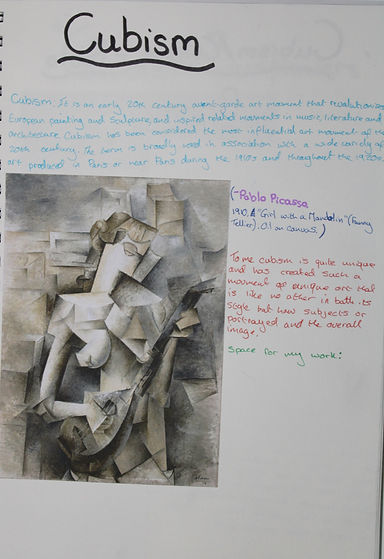 Cubism
Cubism. It is an early 20th century avant-garde art movment that revolutionized
European painting and sculpture, and inspired related movments in music, literature and
architecture. Cubism has been considered the most influential art movment of the
20th century. The term is broadly used in association with a wide variety of
art produced in Paris or near Paris during the 1910s and throughout the 1920s.
(-Pablo Picasso,
1910, "Girl with a Mandolin" (Fanny
Tellier). Oil on canvas.)
To me cubism is quite unique
and has created such a
movment of unique art that
is like no other in both its
style but how subjects or
portrayed and the overall
image.
Space for my work: